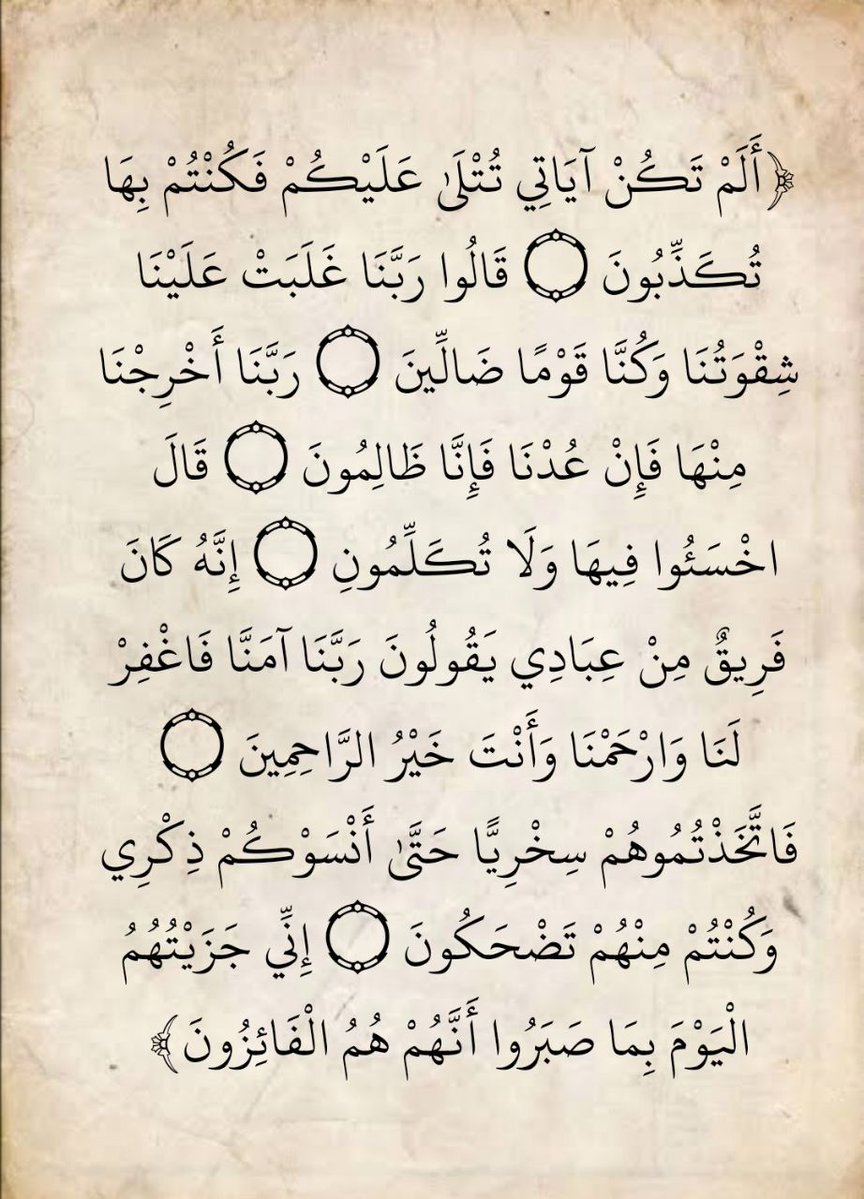 ﴿أَلَمْ تَكُنْ آيَاتِي تُتْلَىٰ عَلَيْكُمْ فَكُنْتُمْ بِهَا
تُكَذِّبُونَ ۝ قَالُوا رَبَّنَا غَلَبَتْ عَلَيْنَا
شِقْوَتُنَا وَكُنَّا قَوْمًا ضَالِّينَ ۝ رَبَّنَا أَخْرِجْنَا
مِنْهَا فَإِنْ عُدْنَا فَإِنَّا ظَالِمُونَ ۝ قَالَ
اخْسَئُوا فِيهَا وَلَا تُكَلِّمُونِ ۝ إِنَّهُ كَانَ
فَرِيقٌ مِنْ عِبَادِي يَقُولُونَ رَبَّنَا آمَنَّا فَاغْفِرْ
لَنَا وَارْحَمْنَا وَأَنْتَ خَيْرُ الرَّاحِمِينَ ۝
فَاتَّخَذْتُمُوهُمْ سِخْرِيًّا حَتَّىٰ أَنْسَوْكُمْ ذِكْرِي
وَكُنْتُمْ مِنْهُمْ تَضْحَكُونَ ۝ إِنِّي جَزَيْتُهُمُ
الْيَوْمَ بِمَا صَبَرُوا أَنَّهُمْ هُمُ الْفَائِزُونَ﴾